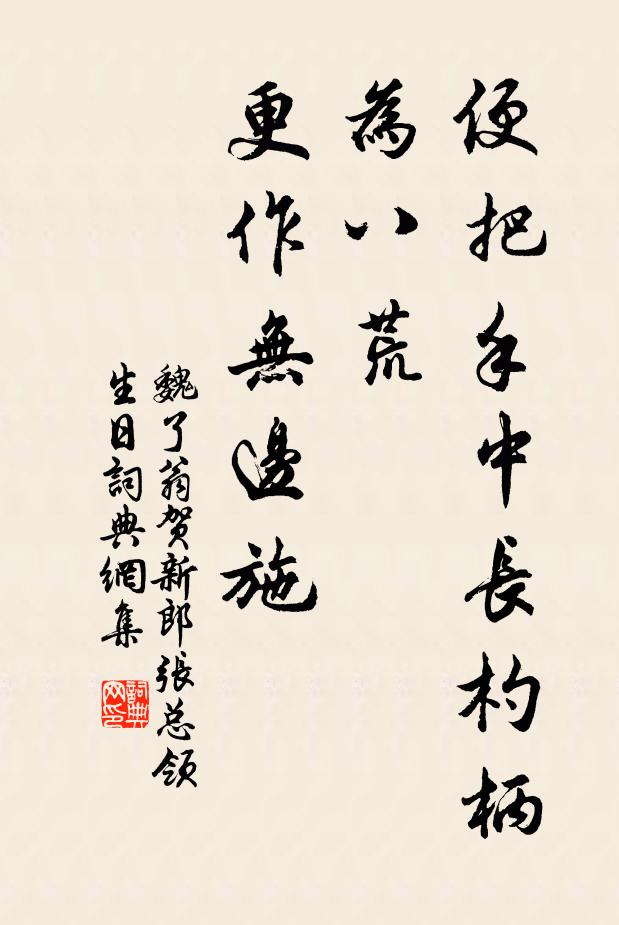 便把手中長杓柄
為八荒
更作無邊施
魏了翁贺新郎張总领
生日詞典網集
詞典
网印